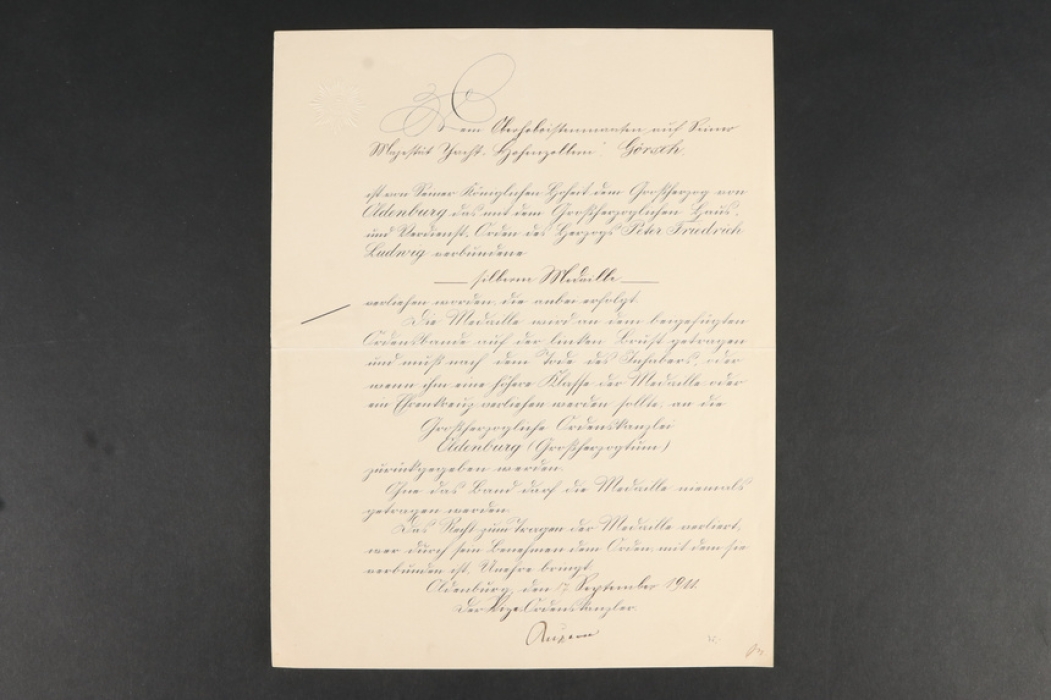 Dem Oberhoboistenmaaten auf Seiner
Majestät Yacht „Hohenzollern“ Görsch,
ist von Seiner Königlichen Hoheit dem Großherzog von
Oldenburg das mit dem Großherzoglichen Haus-
und Verdienst-Orden des Herzogs Peter Friedrich
Ludwig verbundene
— silberne Medaille —
verliehen worden, die anbei erfolgt.
Die Medaille wird an dem beigefügten
Ordensbande auf der linken Brust getragen
und muß nach dem Tode des Inhabers, oder
wenn ihm eine höhere Klasse der Medaille oder
ein Ehrenkreuz verliehen werden sollte, an die
Großherzogliche Ordenskanzlei
Oldenburg (Großherzogtum)
zurückgegeben werden.
Ohne das Band darf die Medaille niemals
getragen werden.
Das Recht zum Tragen der Medaille verliert,
wer durch sein Benehmen dem Orden, mit dem sie
verbunden ist, Unehre bringt.
Oldenburg, den 17 September 1911.
Der Vize-Ordenskanzler.